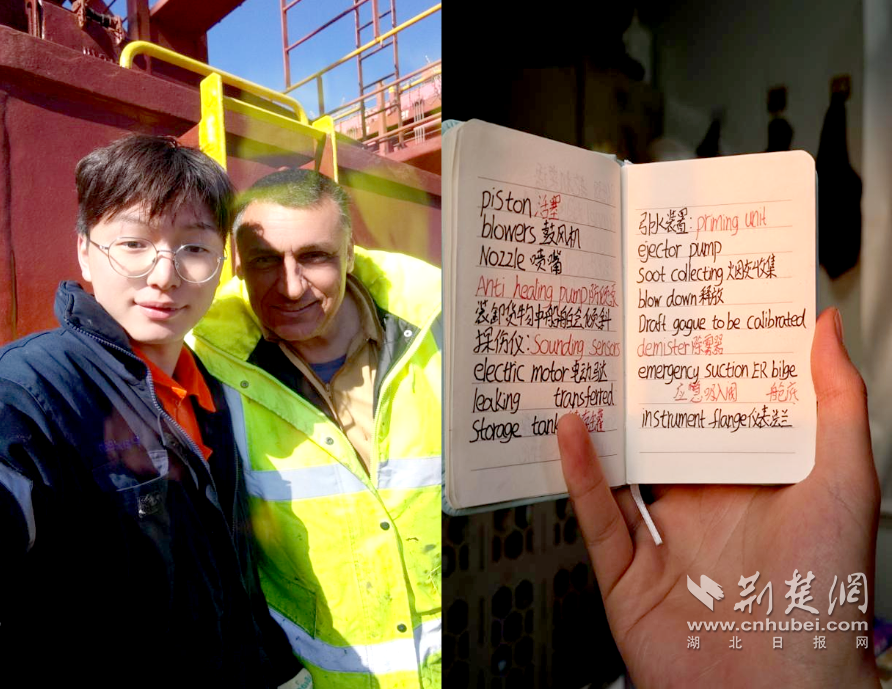 piston 活塞
blowers 鼓风机
Nozzle 喷嘴
Anti healing pump
探伤仪: Sounding sensors
electric motor 电动马达
leaking transferred
storage tank
引水装置: priming unit
ejector pump
Soot collecting 烟灰收集
blow down 释放
Draft gague to be calibrated
demister 除雾器
emergency suction ER bibe
应急吸入阀 舱底
instrument flange 仪表法兰
荆楚网
www.cnhubei.com
湖北日报网